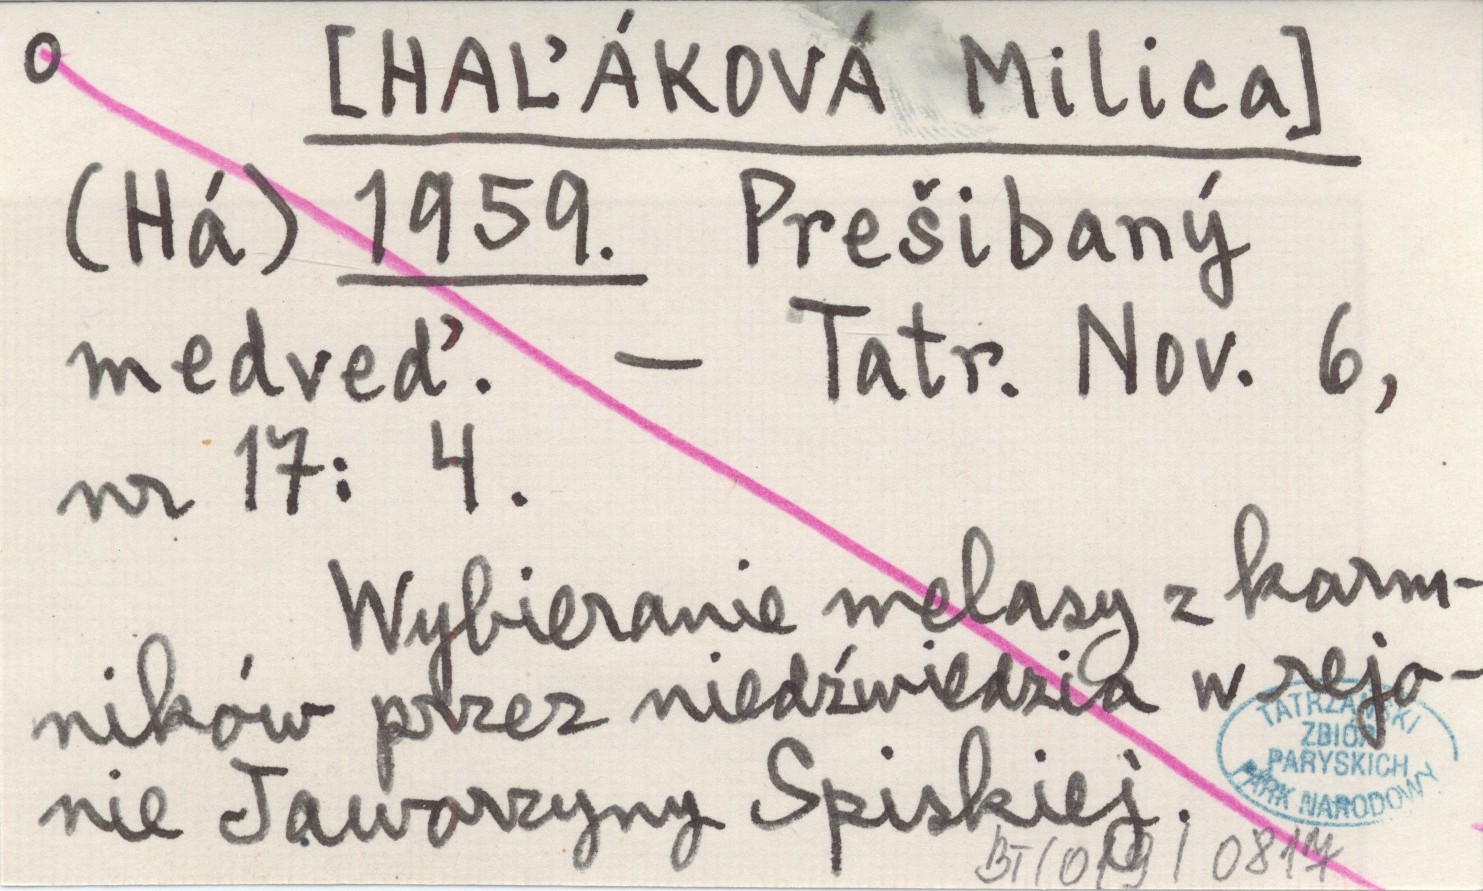 o [HAĽÁKOVÁ Milica]
(Há) 1959. Prešibaný
medveď. — Tatr. Nov. 6,
nr 17: 4.
Wybieranie melasy z karm-
ników przez niedźwiedzia w rejo-
nie Jaworzyny Spiskiej.
TATRZAŃSKI
ZBIÓR
PARYSKICH
PARK NARODOWY
BT/019/0817